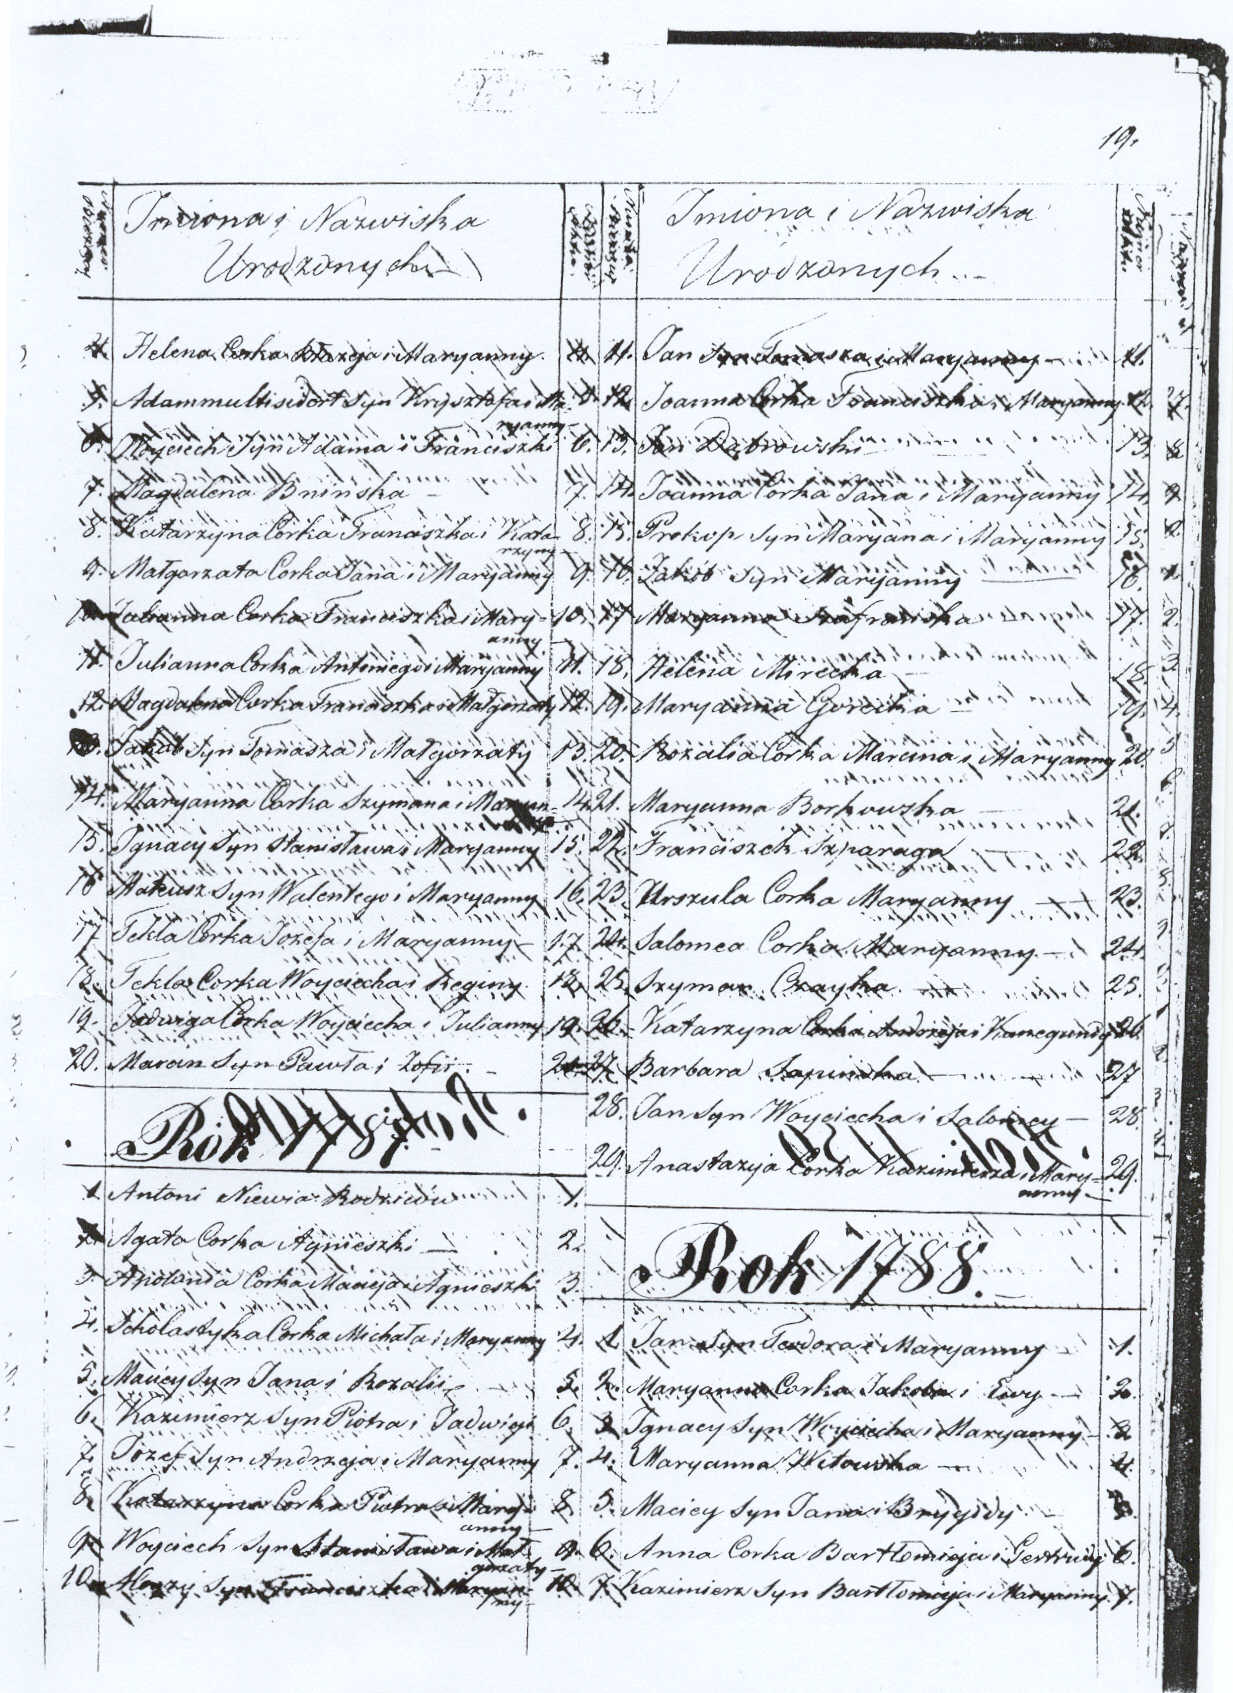 19.
Imiona i Nazwiska
Urodzonych
4. Helena Corka Błażeja i Maryanny. 4.
5. Adam Syn Krzysztofa i Ma- 5.
ryanny
6. Woyciech Syn Adama i Franciszki 6.
7. Magdalena Bninska 7.
8. Katarzyna Corka Franciszka i Kata- 8.
rzyny
9. Małgorzata Corka Jana i Maryanny 9.
10. Julianna Corka Franciszka i Mary- 10.
anny
11. Julianna Corka Antoniego i Maryanny 11.
12. Magdalena Corka Franciszka i Małgorzaty 12.
13. Jakub Syn Tomasza i Małgorzaty 13.
14. Maryanna Corka Szymona i Maryan- 14.
15. Ignacy Syn Stanisława i Maryanny 15.
16 Mateusz Syn Walentego i Maryanny 16.
17 Tekla Corka Jozefa i Maryanny 17
18. Tekla Corka Woyciecha i Reginy 18.
19. Jadwiga Corka Woyciecha i Julianny 19.
20. Marcin Syn Pawła i Zofii 20.
Rok 1787
1 Antoni Niewia: Rodziców 1.
2. Agata Corka Agnieszki 2.
3. Apolonia Corka Macieja i Agnieszki 3.
4. Scholastyka Corka Michała i Maryanny 4.
5. Maciey Syn Jana i Rozalii 5.
6. Kazimierz Syn Piotra i Jadwigi 6.
7. Jozef Syn Andrzeja i Maryanny 7.
8. Katarzyna Corka Piotra i Mary- 8.
anny
9. Woyciech Syn Stanisława i Mał- 9.
gorzaty
10. Syn Franciszka i Maryan- 10.
ny
Imiona i Nazwiska
Urodzonych
11. Jan Syn Tomasza i Maryanny 11.
12. Joanna Corka Franciszka i Maryanny 12.
13. Jan Dąbrowski 13.
14. Joanna Corka Jana i Maryanny 14.
15. Prokop Syn Maryana i Maryanny 15.
16. Jakób Syn Maryanny 16.
17 Maryanna Szafrańska 17.
18. Helena Mirecka 18.
19. Maryanna Gorecka 19.
20. Rozalia Corka Marcina i Maryanny 20.
21. Maryanna Borkowska 21.
22. Franciszek Szparaga 22.
23. Urszula Corka Maryanny 23.
24. Salomea Corka Maryanny 24.
25. Szymon Czayka 25.
26. Katarzyna Corka Andrzeja i Kunegundy 26.
27 Barbara 27
28. Jan Syn Woyciecha i Salomey 28.
29. Anastazyja Corka Kazimierza i Mary- 29.
anny
Rok 1788.
1 Jan Syn Teodora i Maryanny 1.
2. Maryanna Corka Jakoba i Ewy 2.
3 Ignacy Syn Woyciecha i Maryanny 3.
4. Maryanna Witowska 4.
5. Maciey Syn Jana i Brygidy 5.
6. Anna Corka Bartłomieja i Gertrudy 6.
7. Kazimierz Syn Bartłomieja i Maryanny 7.